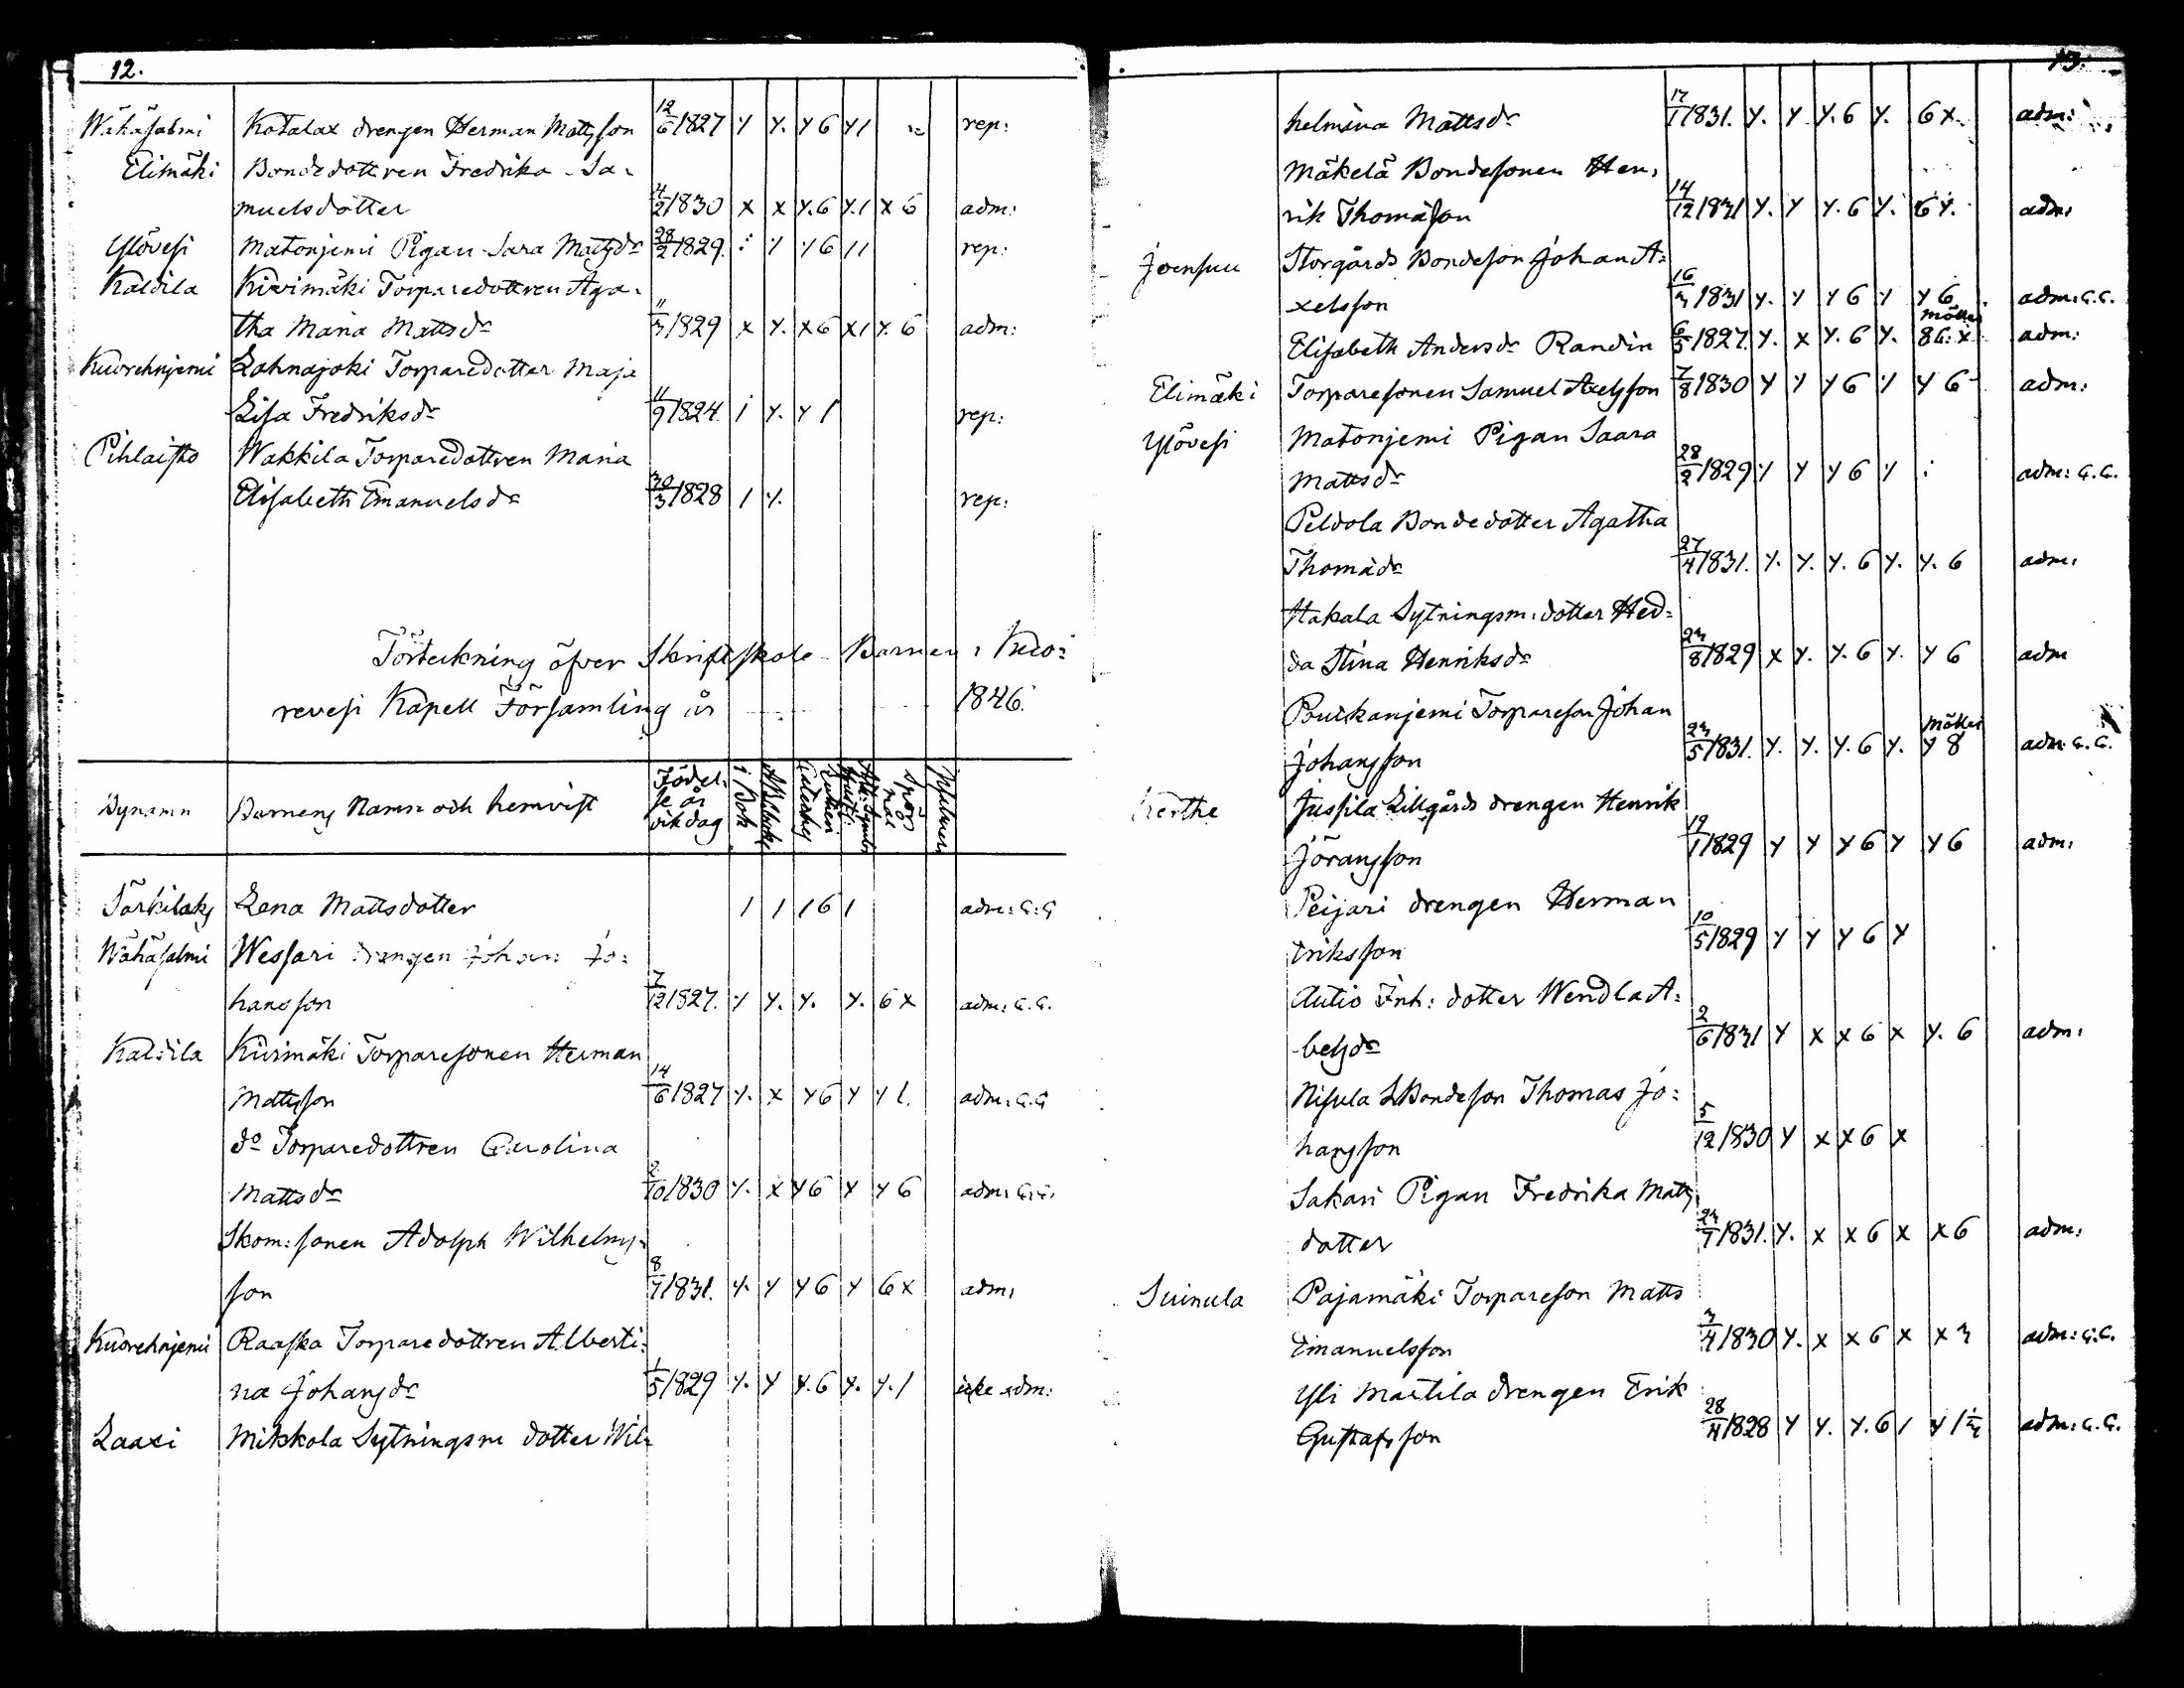 12.
Wähäsalmi Katalax drengen Herman Mattsson 12/6 1827 y y. y 6 y 1 rep:
Elimäki Bondedottren Fredrika Sa-
muelsdotter 4/2 1830 x x y. 6 y. 1 x 6 adm:
Ylövesi Matonjemi Pigan Sara Mattsdr 28/2 1829. rep:
Kaldila Kivimäki Torparedottren Aga-
tha Maria Mattsdr 11/3 1829 x y. x 6 x 1 y. 6 adm:
Kuorehnjemi Lahnajoki Torparedotter Maja
Lisa Fredriksdr 11/9 1824. 1 y. y 1 rep:
Pihlaisto Wakkila Torparedottren Maria
Elisabeth Emanuelsdr 30/3 1828 1 y. rep:
Förteckning öfver Skriftskole Barnen i Kuo-
revesi Kapell Församling år 1846.
Bynamn Barnens Namn och hemvist Födel-
se år
och dag i Bok Spörs
mål
Särkilaks Lena Mattsdotter 1 1 1 6 1 adm: C: C
Wähäsalmi Wessari drengen Johan Jo-
hansson 7/12 1827. y y. y. y. 6 x adm: C. C.
Kaldila Kivimäki Torparesonen Herman
Mattsson 14/6 1827 y. x y 6 y y 1. adm: C. C
do Torparedottren Carolina
Mattsdr 2/10 1830 y. x y 6 y y 6 adm: C. C.
Skom: sonen Adolph Wilhelms-
son 8/7 1831. y. y y 6 y 6 x adm:
Kuorehnjemi Raaska Torparedottren Alberti-
na Johansdr 1/5 1829 y. y y. 6 y. y. 1 icke adm:
Laaxi Mikkola Sytningsm dotter Wil-
13.
helmina Mattsdr 17/1 1831. y. y y. 6 y. 6 x. adm:
Mäkelä Bondesonen Hen-
rik Thomasson 14/12 1831 y. y y. 6 y. 6 y. adm:
Joensuu Storgårds Bondeson Johan A-
xelsson 16/3 1831 y. y y 6 y y 6 adm: C. C.
Elisabeth Andersdr Randin 6/5 1827. y. x y. 6 y. 8 6: x adm:
Elimäki Torparesonen Samuel Axelsson 7/8 1830 y y y 6 y y 6 adm:
Ylövesi Matonjemi Pigan Saara
Mattsdr 28/2 1829 y y y 6 y adm: C. C.
Peldola Bondedotter Agatha
Thomadr 27/4 1831. y. y. y. 6 y. y. 6 adm:
Hakala Sytningsm: dotter Hed-
da Stina Henriksdr 23/8 1829 x y. y. 6 y. y 6 adm
Pouckanjemi Torpareson Johan
Johansson 23/5 1831. y. y. y. 6 y. y 8 adm: C. C.
Kerthe Jussila Lillgårds drengen Henrik
Göransson 19/1 1829 y y y 6 y y 6 adm:
Peijari drengen Herman
Eriksson 10/5 1829 y y y 6 y
Autio Inh: dotter Wendla A-
belsdr 2/6 1831 y x x 6 x y. 6 adm:
Nisula Bondeson Thomas Jo-
hansson 5/12 1830 y x x 6 x
Sakari Pigan Fredrika Matts
dotter 23/7 1831. y. x x 6 x x 6 adm:
Suinula Pajamäki Torpareson Matts
Emanuelsson 3/4 1830 y. x x 6 x x 3 adm: C. C.
Yli Mattila drengen Erik
Gustafsson 28/4 1828 y y. y. 6 1 adm: C. C.